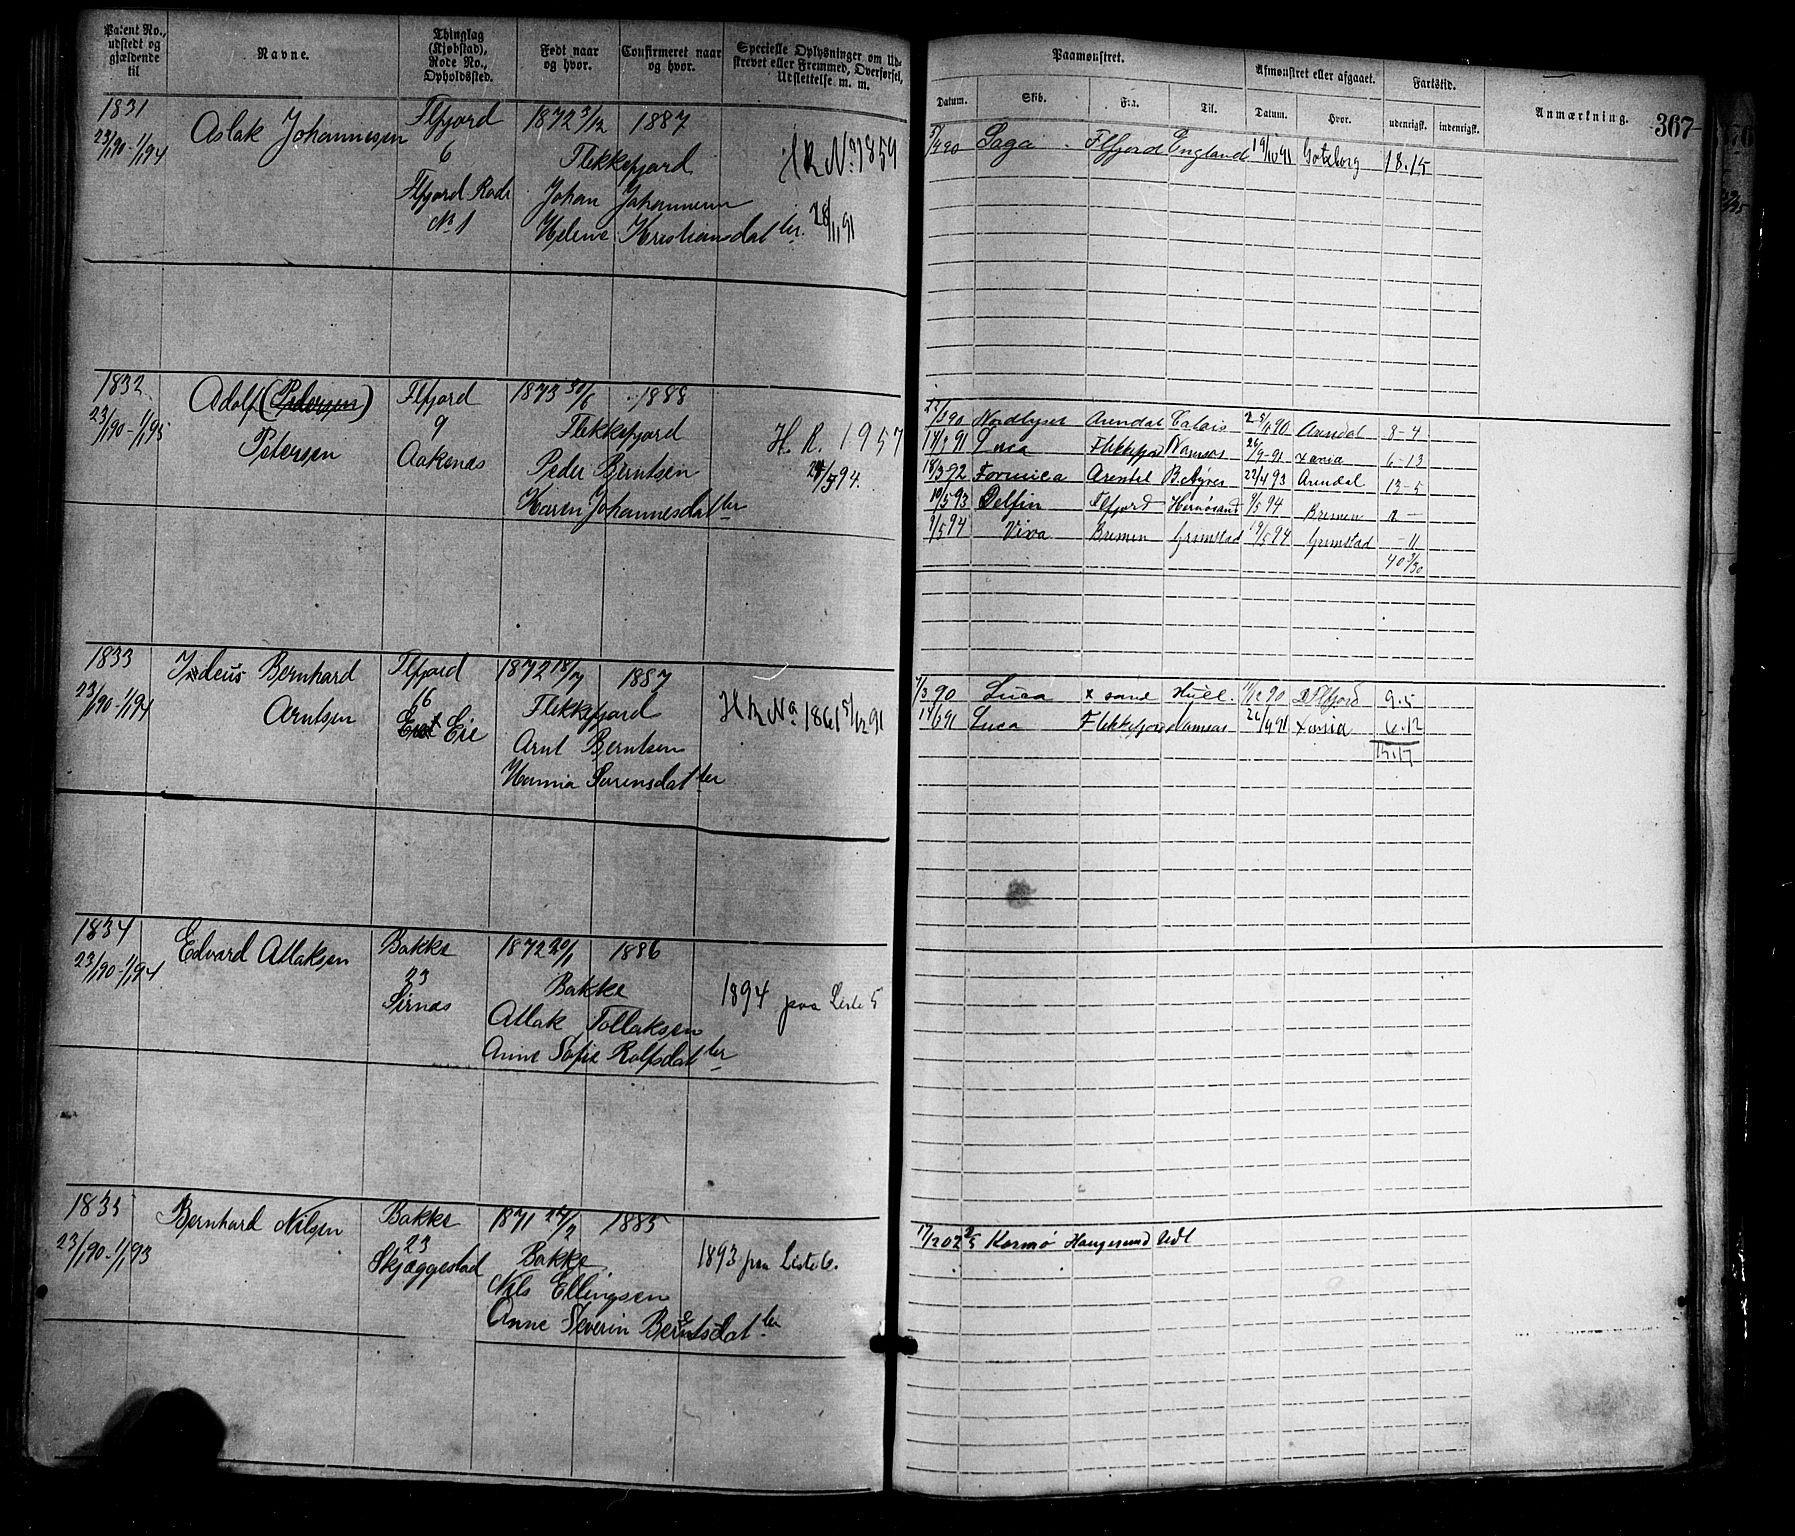 Patent No., udstedt og gjældende til
Navne.
Thinglag (Kjøbstad), Rode No., Opholdssted.
Født naar og hvor.
Confirmeret naar og hvor.
Specielle Oplysninger om Udskrevet eller Fremmed, Overførsel, Udslettelse m. m.
Paamønstret.
Afmønstret eller afgaaet.
Fartstid.
Anmærkning.
367
Datum.
Skib.
Fra.
Til.
Datum.
Hvor.
udenrigsk.
indenrigsk.
1831
23/1 90-1/1 94
Aslak Johannesen
Flfjord
6
Flfjord Rode
No 1
1872 3/12
1887
Flekkefjord
Johan Johannesen
Helene Kristiansdatter
HR No 1859
28/11 91
Saga Flfjord England 19/10 91 Gøteborg 18.15
1832
23/1 90-1/1 95
Adolf (Pedersen)
Petersen
Flfjord
9
Aakenæs
1873 30/6
1888
Flekkefjord
Peder Berntsen
Karen Johannesdatter
H. R. 1957
24/5 94.
Nordlyset Arendal Calais Arendal 8-4
Luca Flekkefjord Namsos 26/9-91 Xania 6-13
18/3 92 Formica Arendal B. Ayres 22/4 93 Arendal 13-5
10/5 93 Delfin Flfjord Hernøsand 9/5 94 Bremen
9/5 94 Viva Bremen Grimstad 19/5 94 Grimstad -11
40 3/30
1833
23/1 90-1/1 94
Bernhard
Arntsen
Flfjord
16
Eie
1872 18/7
1887
Flekkefjord
Arnt Berntsen
Hanna Sørensdatter
HR No 1861 5/12 91
90 Luca X sand Hull 90 Flfjord 9.5
14/6 91 Luca Flekkefjord Namsos 26/9 91 Xania 6.12
15.17
1834
23/1 90-1/1 94
Edvard Atlaksen
Bakke
23
Sirnæs
1872 20/1
1886
Bakke
Atlak Tollaksen
Anne Sofie Rolfsdatter
1894 paa Liste 5
1835
23/1 90-1/1 93
Bernhard Nilsen
Bakke
23
Skjæggestad
1871 24/2
1885
Bakke
Nils Ellingsen
Anne Severin Berntsdatter
1893 paa Liste 6.
17/2 02 Karmø Haugesund Udl